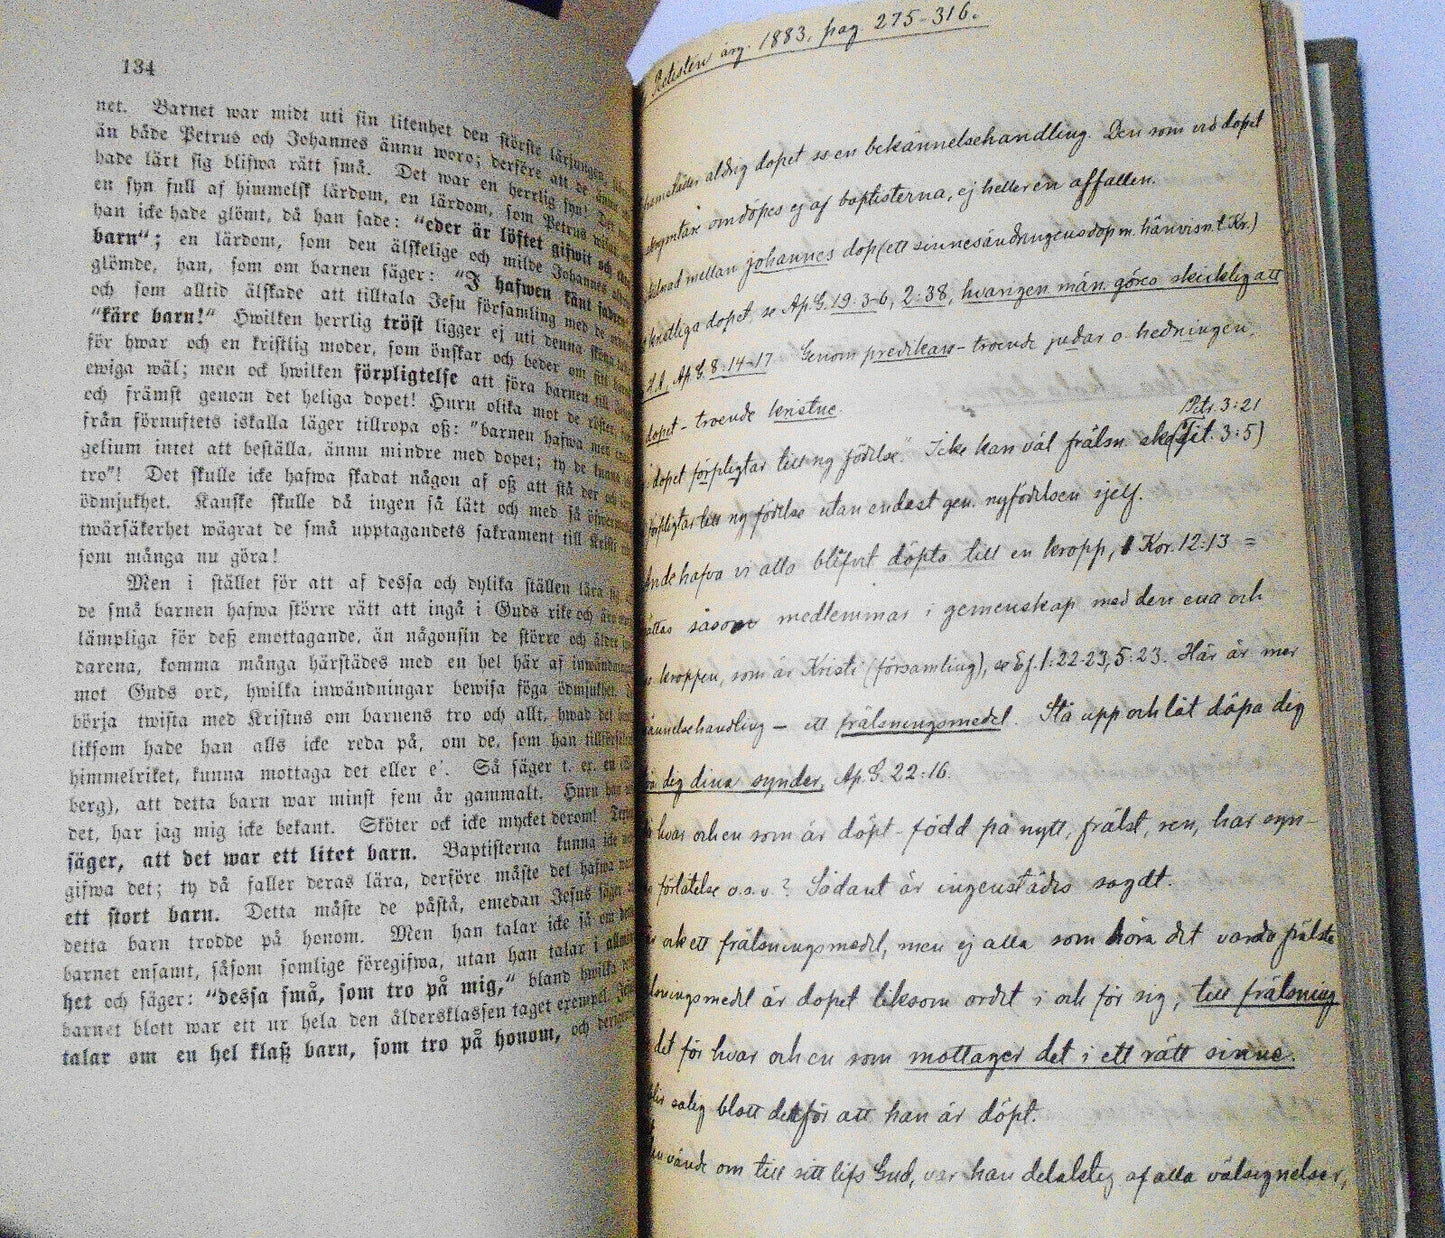 134
net. Barnet war midt uti sin litenhet den störste lärjungen,
än både Petrus och Johannes ännu woro; derföre att de ännu
hade lärt sig blifwa rätt små. Det war en herrlig syn!
en syn full af himmelsk lärdom, en lärdom, som Petrus
han icke hade glömt, då han sade: "eder är löftet gifwit och
barn"; en lärdom, som den älskelige och milde Johannes aldrig
glömde, han, som om barnen säger: "I hafwen känt fadren"
och som alltid älskade att tilltala Jesu församling med de
"käre barn!" Hwilken herrlig tröst ligger ej uti denna
för hwar och en kristlig moder, som önskar och beder om sitt
ewiga wäl; men ock hwilken förpligtelse att föra barnen till
och främst genom det heliga dopet! Huru olika mot de röster,
från förnuftets iskalla läger tillropa oß: "barnen hafwa med
gelium intet att beställa, ännu mindre med dopet; ty de kunna
tro"! Det skulle icke hafwa skadat någon af oß att stå der och
ödmjukhet. Kanske skulle då ingen så lätt och med så
twärsäkerhet wägrat de små upptagandets sakrament till Kristi
som många nu göra!
Men i stället för att af dessa och dylika ställen lära
de små barnen hafwa större rätt att ingå i Guds rike och
lämpliga för deß emottagande, än någonsin de större och äldre
darena, komma många härstädes med en hel här af inwändningar
mot Guds ord, hwilka inwändningar bewisa föga ödmjukhet.
börja twista med Kristus om barnens tro och allt, hwad det
liksom hade han alls icke reda på, om de, som han tillförsäkrat
himmelriket, kunna mottaga det eller e'. Så säger t. ex. en
berg), att detta barn war minst fem år gammalt. Huru han
det, har jag mig icke bekant. Sköter ock icke mycket derom!
säger, att det war ett litet barn. Baptisterna kunna icke
gifwa det; ty då faller deras lära, derföre måste det hafwa
ett stort barn. Detta måste de påstå, emedan Jesus säger
detta barn trodde på honom. Men han talar icke så om
barnet ensamt, såsom somlige föregifwa, utan han talar i allmän-
het och säger: "dessa små, som tro på mig," bland hwilka
barnet blott war ett ur hela den åldersklassen taget exempel.
talar om en hel klaß barn, som tro på honom, och
Pietisten årg. 1883, pag 275-316.
aldrig dopet ss en bekännelsehandling. Den som vid dopet
omdöpes ej af baptisterna, ej heller en affallen.
mellan Johannes dop (ett sinnesändringensdop m. hänvisn. t. Kr.)
kristliga dopet, se Ap.G. 19:3-6, 2:38, hvarigen. män. göres skicklig att
Ap.G. 8:14-17. Genom predikan - troende judar o. hedningen,
dopet - troende kristne.
Petr. 3:21
dopet förpligtar till ny födelse." Icke kan väl frälsn. ske (Tit. 3:5)
förpligtar till ny födelse utan endast gen. nyfödelsen sjelf.
Ande hafva vi alla blifvit döpta till en kropp, 1 Kor. 12:13 =
såsom medlemmar i gemenskap med den ena och
kroppen, som är Kristi (församling), se Ef. 1:22-23, 5:23. Här är mer
bekännelsehandling - ett frälsningsmedel. Stå upp och låt döpa dig
dig dina synder, Ap.G. 22:16.
hvar och en som är döpt - född på nytt, frälst, ren, har syn-
förlåtelse o.s.v.? Sådant är ingenstädes sagdt.
ock ett frälsningsmedel, men ej alla som höra det varda frälste
är dopet liksom ordet i och för sig, till frälsning
det för hvar och en som mottager det i ett rätt sinne.
salig blott derför att han är döpt.
vände om till sitt lifs Gud, var han delaktig af alla välsignelser,